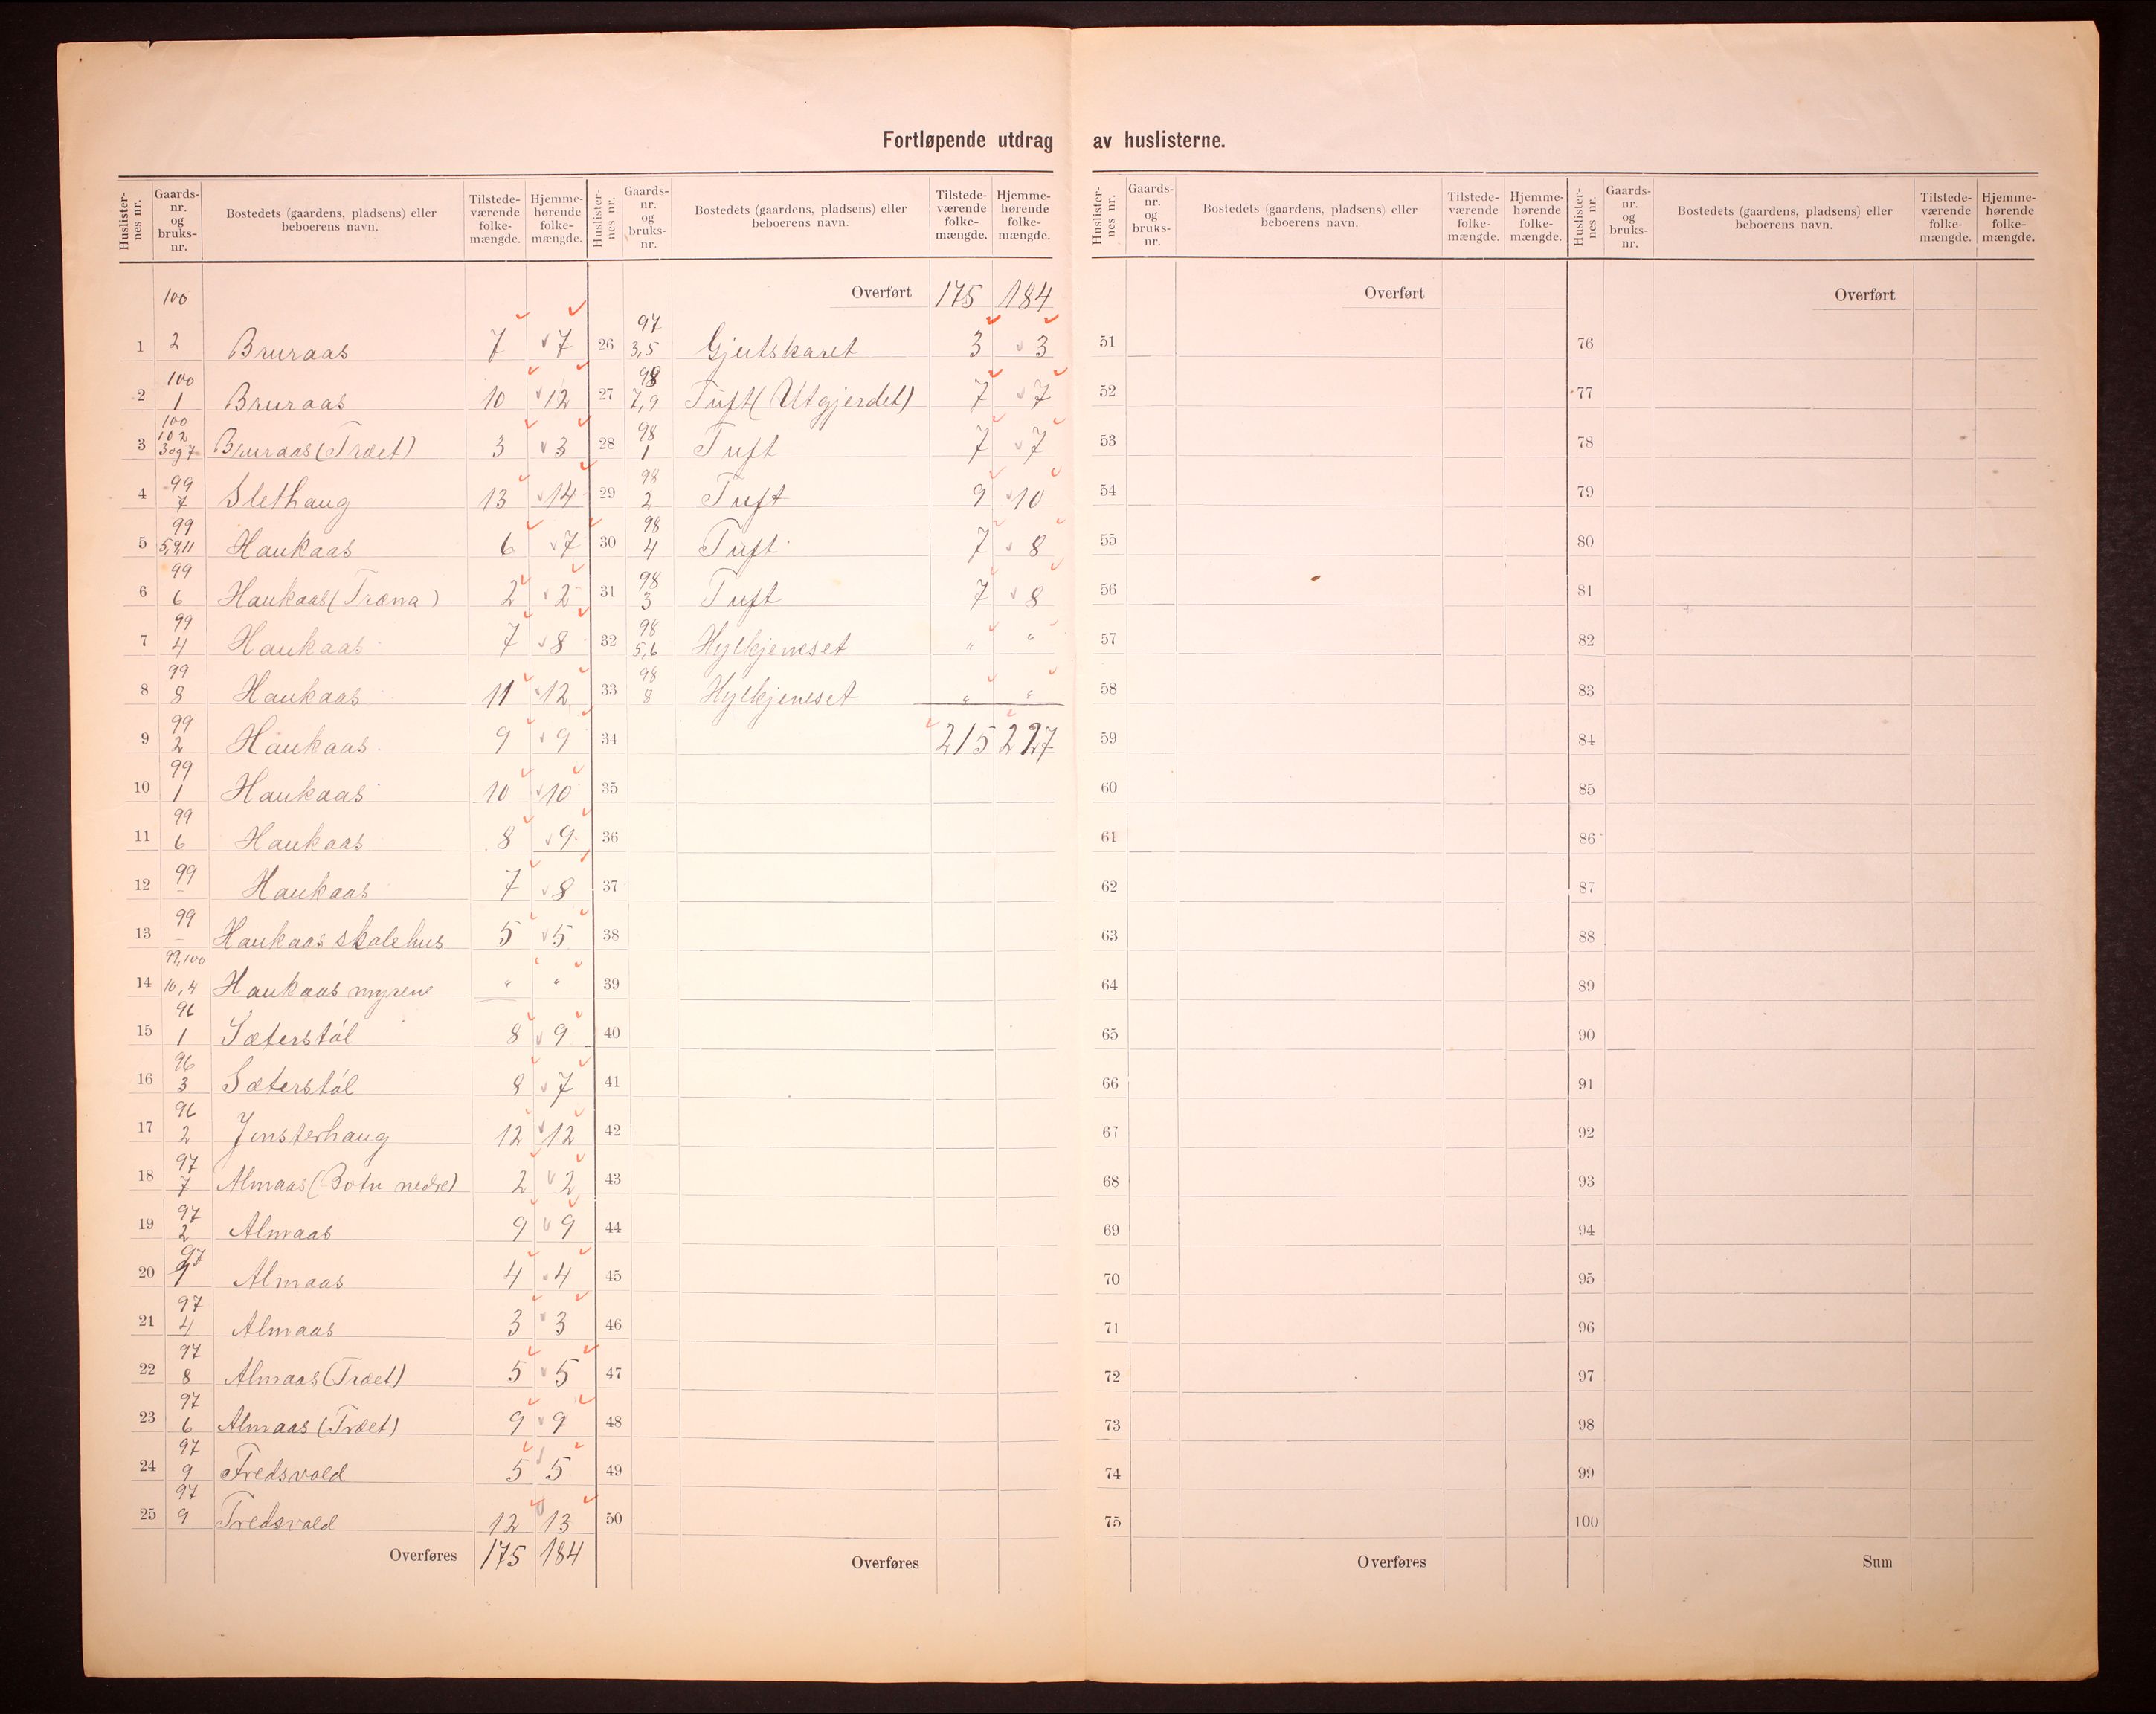 Fortløpende utdrag av huslisterne.
Huslister-nes nr. Gaards-nr. og bruks-nr. Bostedets (gaardens, pladsens) eller beboerens navn. Tilstede-værende folke-mængde. Hjemme-hørende folke-mængde.
1 100 2 Bruraas 7 7
2 100 1 Bruraas 10 12
3 100 102 3 og 7 Bruraas (Træet) 3 3
4 99 7 Slethaug 13 14
5 99 5,9,11 Haukaas 6 7
6 99 6 Haukaas (Træna) 2 2
7 99 4 Haukaas 7 8
8 99 8 Haukaas 11 12
9 99 2 Haukaas 9 9
10 99 1 Haukaas 10 10
11 99 6 Haukaas 8 9
12 99 – Haukaas 7 8
13 99 – Haukaas skolehus 5 5
14 99,100 10,4 Haukaas myrene " "
15 96 1 Sæterstøl 8 9
16 96 3 Sæterstøl 8 7
17 96 2 Jensterhaug 12 12
18 97 7 Almaas (Botn nedre) 2 2
19 97 2 Almaas 9 9
20 97 1 Almaas 4 4
21 97 4 Almaas 3 3
22 97 8 Almaas (Træet) 5 5
23 97 6 Almaas (Træet) 9 9
24 97 9 Fredsvold 5 5
25 97 9 Fredsvold 12 13
Overføres 175 184
Huslister-nes nr. Gaards-nr. og bruks-nr. Bostedets (gaardens, pladsens) eller beboerens navn. Tilstede-værende folke-mængde. Hjemme-hørende folke-mængde.
Overført 175 184
26 97 3,5 Gjutskaret 3 3
27 98 7,9 Tuft (Utgjerdet) 7 7
28 98 1 Tuft 7 7
29 98 2 Tuft 9 10
30 98 4 Tuft 7 8
31 98 3 Tuft 7 8
32 98 5,6 Hylkjeneset " "
33 98 8 Hylkjeneset " "
34 215 227
35
36
37
38
39
40
41
42
43
44
45
46
47
48
49
50
Overføres
Huslister-nes nr. Gaards-nr. og bruks-nr. Bostedets (gaardens, pladsens) eller beboerens navn. Tilstede-værende folke-mængde. Hjemme-hørende folke-mængde.
Overført
51
52
53
54
55
56
57
58
59
60
61
62
63
64
65
66
67
68
69
70
71
72
73
74
75
Overføres
Huslister-nes nr. Gaards-nr. og bruks-nr. Bostedets (gaardens, pladsens) eller beboerens navn. Tilstede-værende folke-mængde. Hjemme-hørende folke-mængde.
Overført
76
77
78
79
80
81
82
83
84
85
86
87
88
89
90
91
92
93
94
95
96
97
98
99
100
Sum